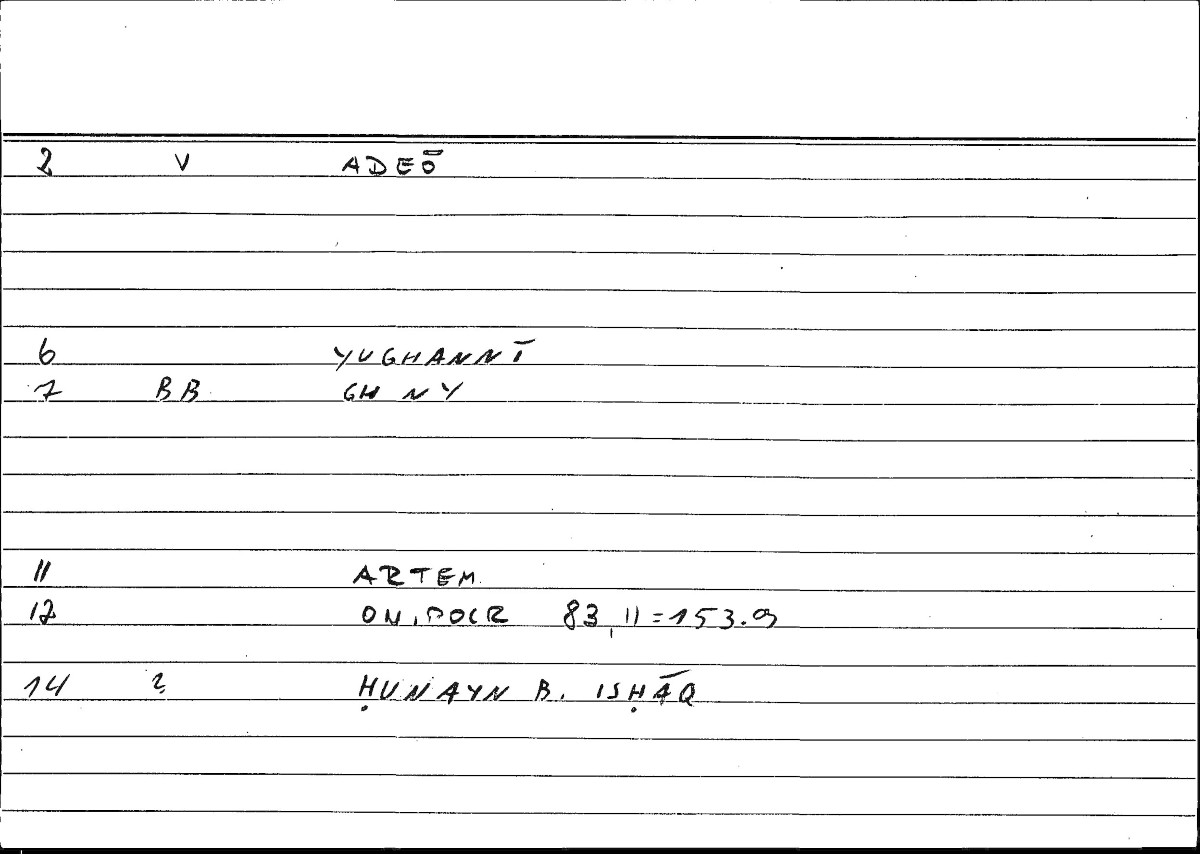 2 V ADEŌ
6 YUGHANNĪ
7 BB GH N Y
11 ARTEM.
12 ON, 83, 11 = 153.9
14 ? ḤUNAYN B. ISḤĀQ